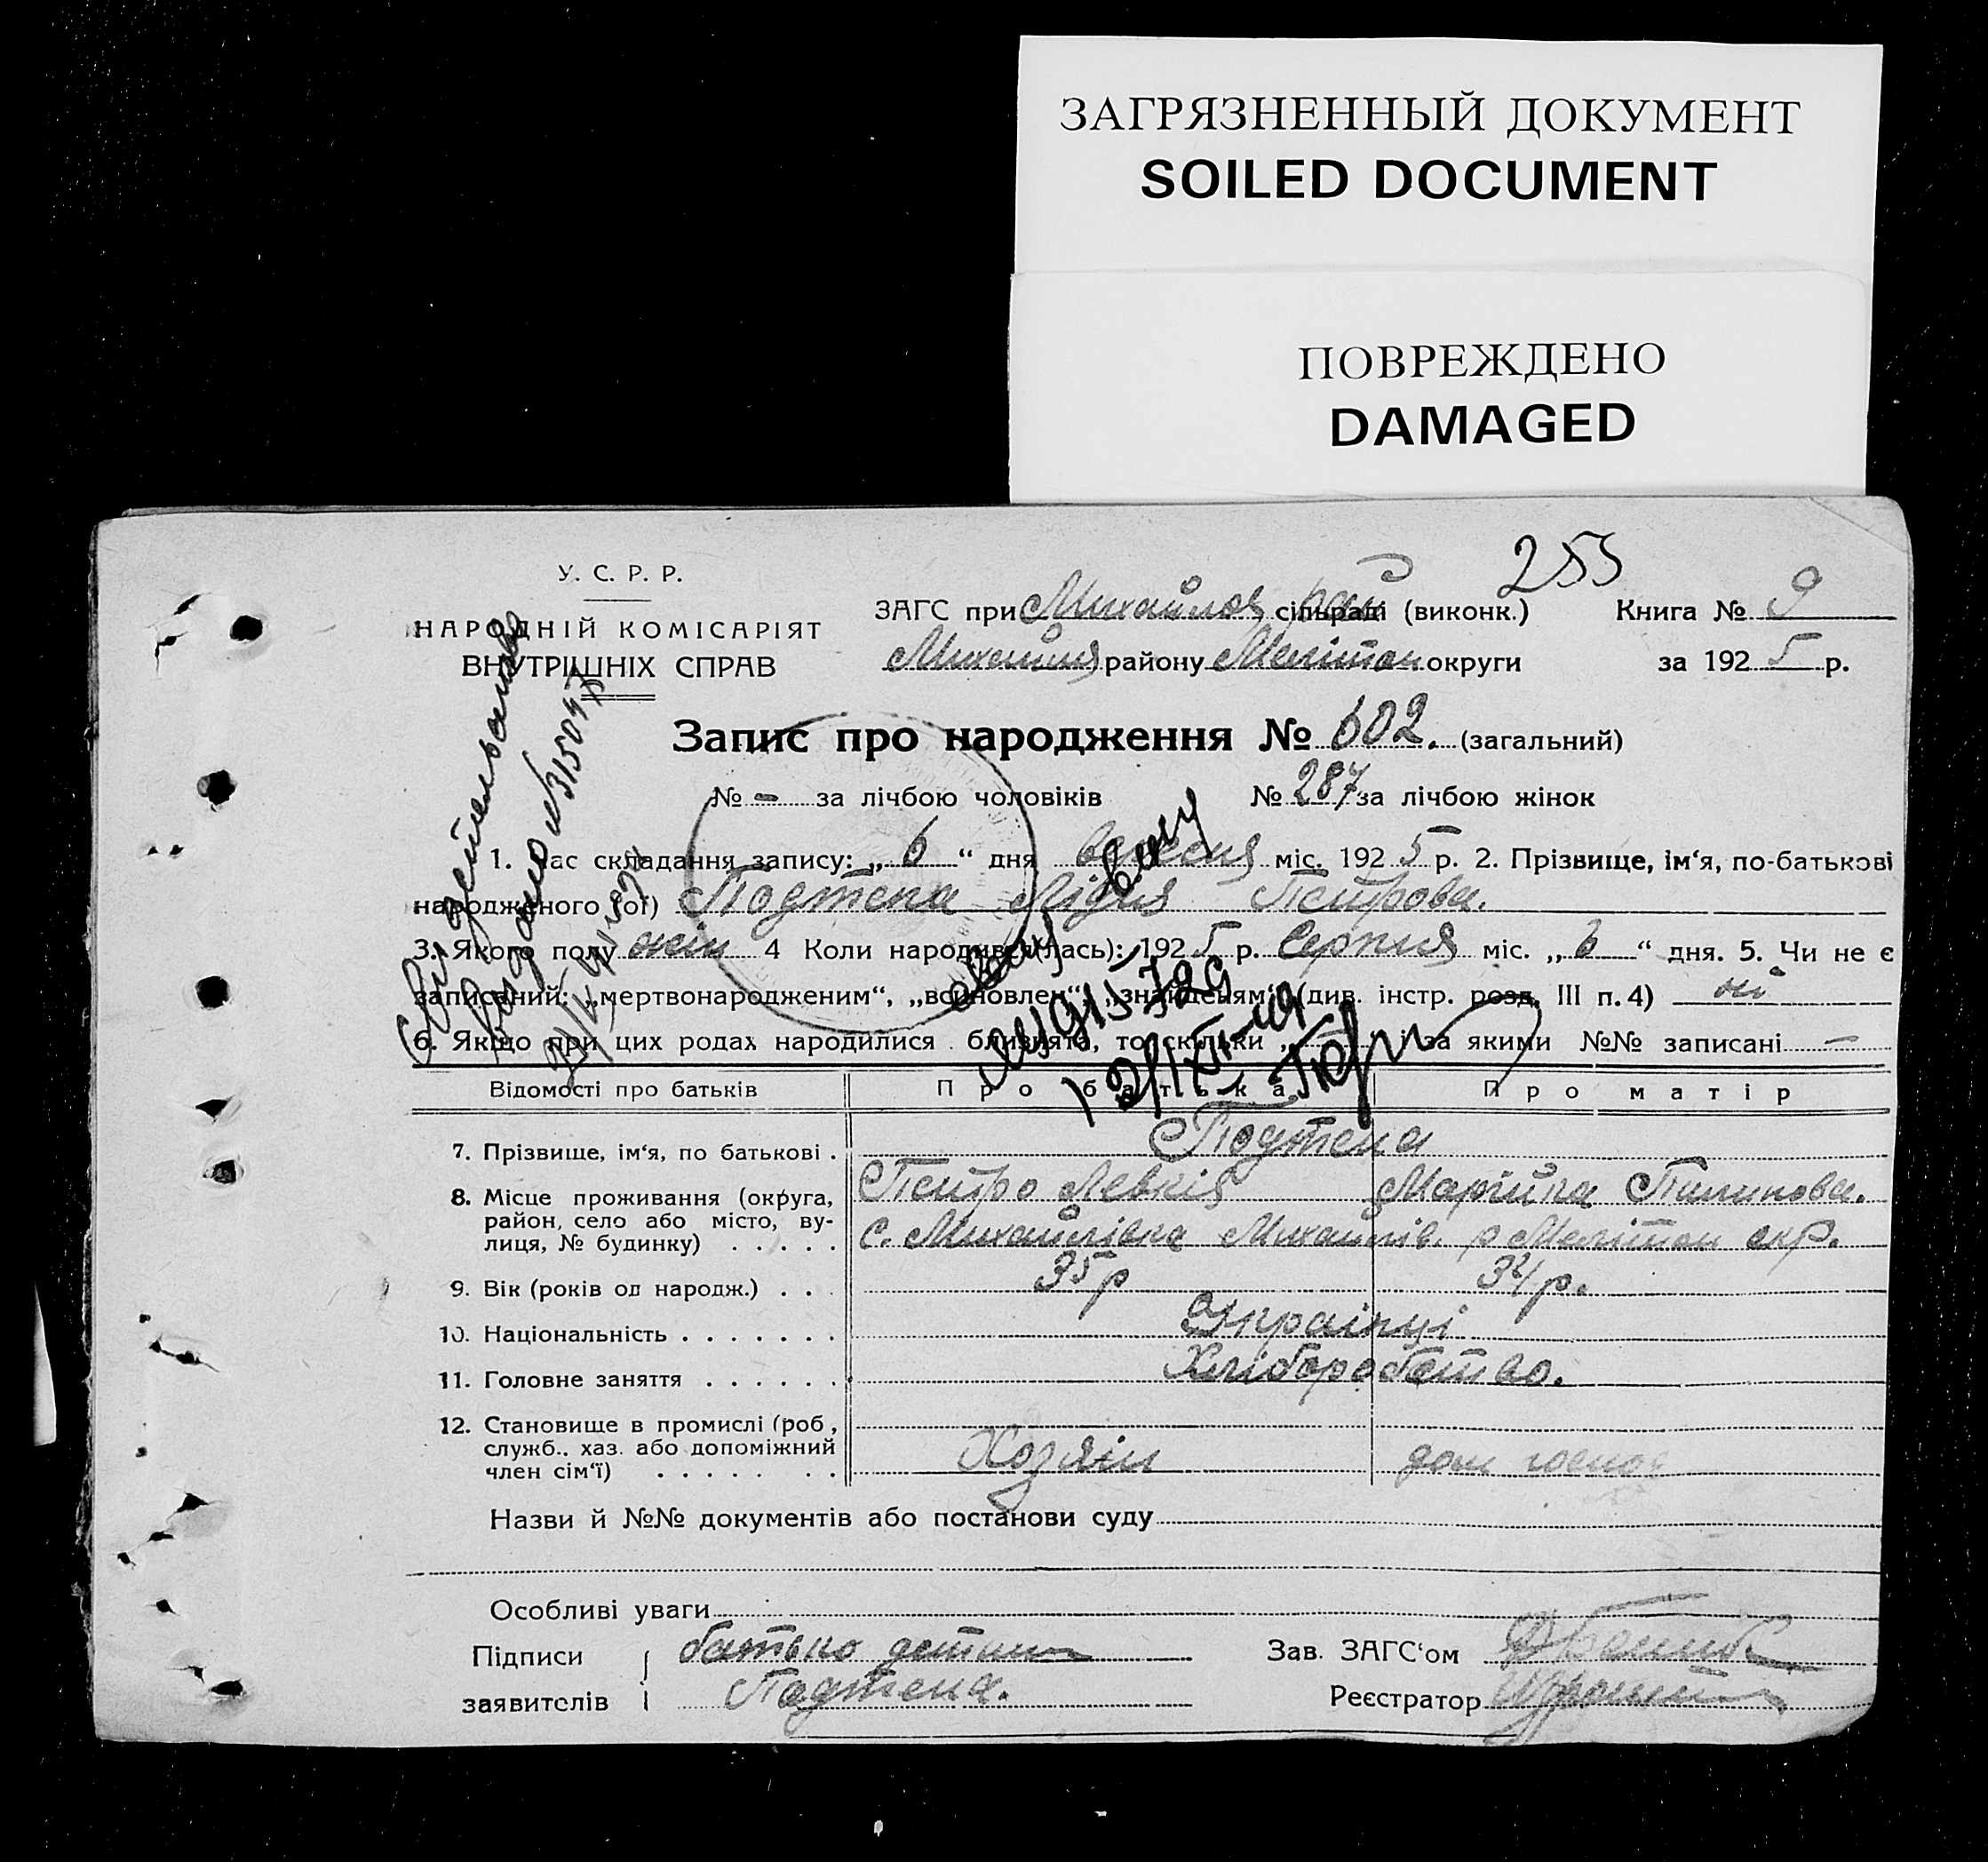 ЗАГРЯЗНЕННЫЙ ДОКУМЕНТ
SOILED DOCUMENT
ПОВРЕЖДЕНО
DAMAGED
255
У. С. Р. Р.
НАРОДНІЙ КОМІСАРІЯТ
ВНУТРІШНІХ СПРАВ
ЗАГС при Михайлов рай сільраді (виконк.) Книга № 9
району Мелітоп округи за 1925 р.
Запис про народження № 602. (загальний)
№ - за лічбою чоловіків № 287 за лічбою жінок
1. Час складання запису: „6“ дня вересня міс. 1925 р. 2. Прізвище, ім‘я, по-батькові
народженого (ої) Подтепа Лідия Петрова.
3. Якого полу жін 4 Коли народився(лась): 1925 р. Серпня міс. „6“ дня. 5. Чи не є
записаний: „мертвонародженим“, „всиновлен“, „знайденям“ (див. інстр. розд. III п. 4) ні
6. Якщо при цих родах народилися близнята, то скільки „ “ і за якими №№ записані —
Свидетельство
Видано № 315047
Відомості про батьків Про батька Про матір
7. Прізвище, ім‘я, по батькові . Подтепа
Петро Левків Марійка Пилипова.
8. Місце проживання (округа,
район, село або місто, ву-
лиця, № будинку) . . . . . с. Михайлівка Михайлів. р Мелітоп окр.
9. Вік (років од народж.) . . . 35 р 34 р.
10. Національність . . . . . . . Українці
11. Головне заняття . . . . . . Хліборобство.
12. Становище в промислі (роб.,
служб., хаз. або допоміжний
член сім‘ї) . . . . . . . Хозяін дом
Назви й №№ документів або постанови суду
Особливі уваги
Підписи батько детини Зав. ЗАГС‘ом
заявителів Подтепа. Реєстратор